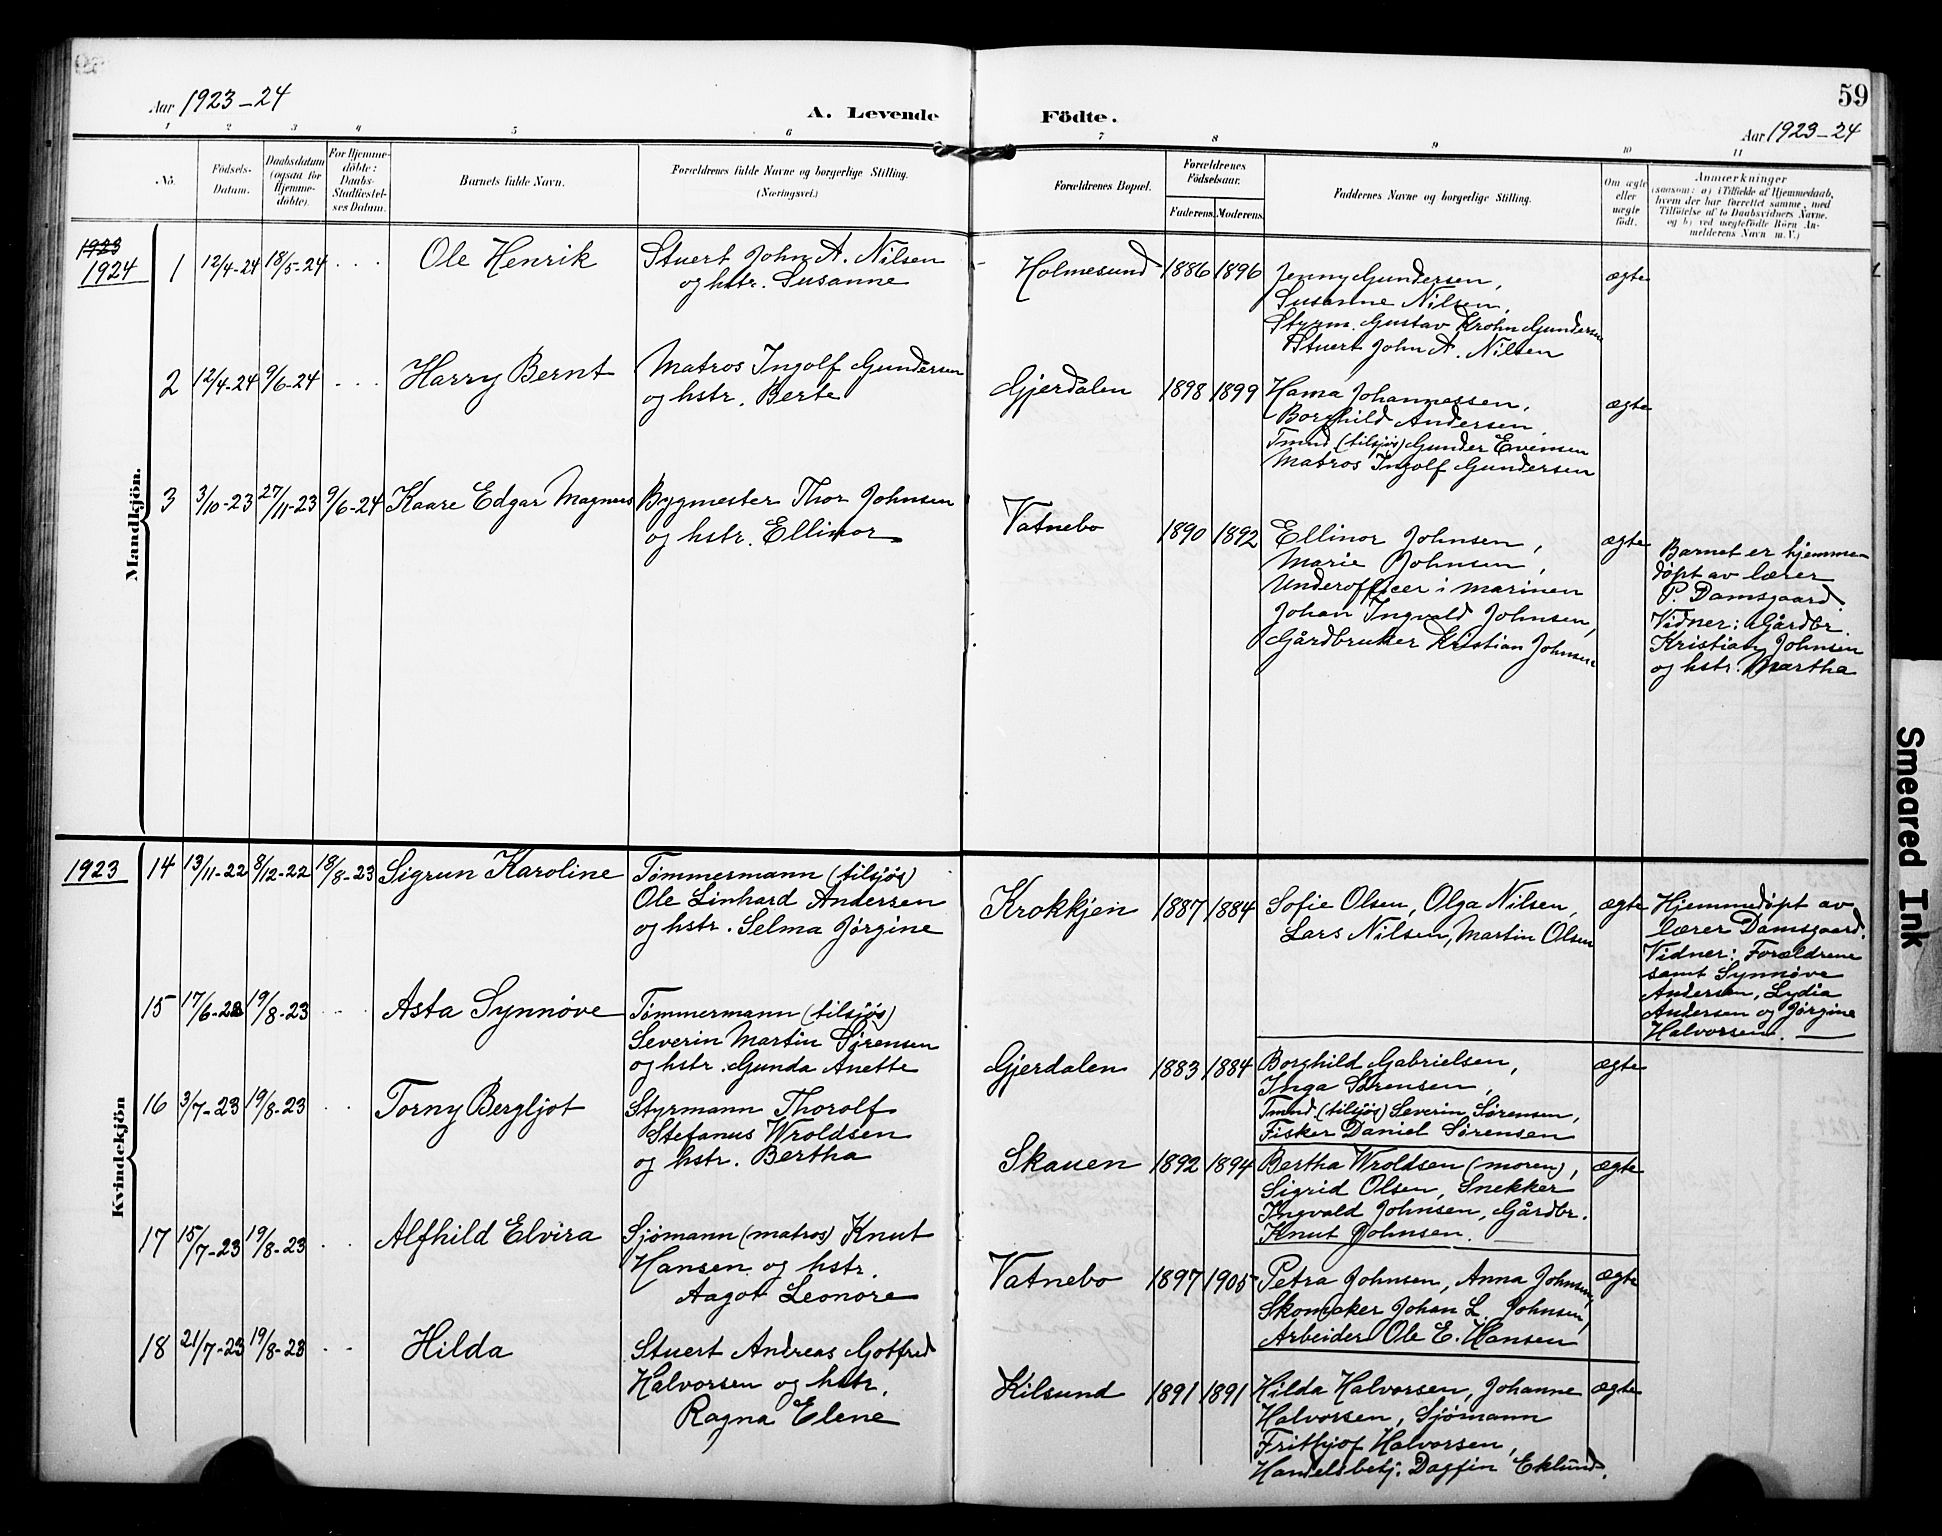 59
Aar 1923-24
A. Levende Födte.
Aar 1923-24
1 2 3 4 5 6 7 8 9 10 11
No.
Födsels-
Datum.
Daabsdatum
(ogsaa for
Hjemme-
döbte).
For Hjemme-
döbte:
Daabs-
Stadfæstel-
ses Datum.
Barnets fulde Navn.
Forældrenes fulde Navne og borgerlige Stilling.
(Næringsvei.)
Forældrenes Bopæl.
Forældrenes
Födselsaar.
Faderens. Moderens.
Faddernes Navne og borgerlige Stilling.
Om ægte
eller
uægte
födt.
Anmærkninger
(saasom: a) i Tilfælde af Hjemmedaab,
hvem der har forrettet samme, med
Tilföielse af to Daabsvidners Navne,
og b) ved uægtefödte Börn An-
melderens Navn m. V.)
Mandkjön.
1923
1924
1 12/4-24 18/5-24 Ole Henrik
Stuert John A. Nilsen
og hstr. Susanne
Holmesund 1886 1896
Jenny Gundersen,
Susanne Nilsen,
Styrm. Gustav Krohn Gundersen
Stuert John A. Nilsen
ægte
2 12/4-24 9/6-24 Harry Bernt
Matros Ingolf Gundersen
og hstr. Berte
Gjerdalen 1898 1899
Hama Johannessen,
Borghild Andersen,
Tmnd (tilsjøs) Gunder Evensen
Matros Ingolf Gundersen
ægte
3 3/10-23 27/11-23 9/6-24 Kaare Edgar Magnus
Bygmester Thor Johnsen
og hstr. Ellinor
Vatnebo 1890 1892
Ellinor Johnsen,
Marie Johnsen,
Underofficer i marinen
Johan Ingvald Johnsen,
Gårdbruker Kristian Johnsen
ægte
Barnet er hjemme-
døpt av lærer
P. Damsgaard.
Vidner: Gårdbr.
Kristian Johnsen
og hstr. Martha
Kvindekjön
1923
14 13/11-22 8/12-22 18/8-23 Sigrun Karoline
Tømmermann (tilsjøs)
Ole Linhard Andersen
og hstr. Selma Jørgine
Krokkjen 1887 1884
Sofie Olsen, Olga Nilsen,
Lars Nilsen, Martin Olsen
ægte
Hjemmedøpt av
lærer Damsgaard.
Vidner: Forældrene
samt Synnøve
Andersen, Lydia
Andersen og Jørgine
Halvorsen.
15 17/6-23 19/8-23 Asta Synnøve
Tømmermann (tilsjøs)
Severin Martin Sørensen
og hstr. Gunda Anette
Gjerdalen 1883 1884
Borghild Gabrielsen,
Inga Sørensen,
Tmnd. (tilsjøs) Severin Sørensen,
Fisker Daniel Sørensen
ægte
16 3/7-23 19/8-23 Torny Bergljot
Styrmann Thorolf
Stefanus Wroldsen
og hstr. Bertha
Skauen 1892 1894
Bertha Wroldsen (moren),
Sigrid Olsen, Snekker
Ingvald Johnsen, Gårdbr.
Knut Johnsen.
ægte
17 15/7-23 19/8-23 Alfhild Elvira
Sjømann (matros) Knut
Hansen og hstr.
Aagot Leonore
Vatnebo 1897 1905
Petra Johnsen, Anna Johnsen,
Skomaker Johan L. Johnsen,
Arbeider Ole E. Hansen
ægte
18 21/7-23 19/8-23 Hilda
Stuert Andreas Gotfred
Halvorsen og hstr.
Ragna Elene
Kilsund 1891 1891
Hilda Halvorsen, Johanne
Halvorsen, Sjömann
Frithjof Halvorsen,
Handelsbetj. Dagfin Eklund.
ægte
Smeared Ink